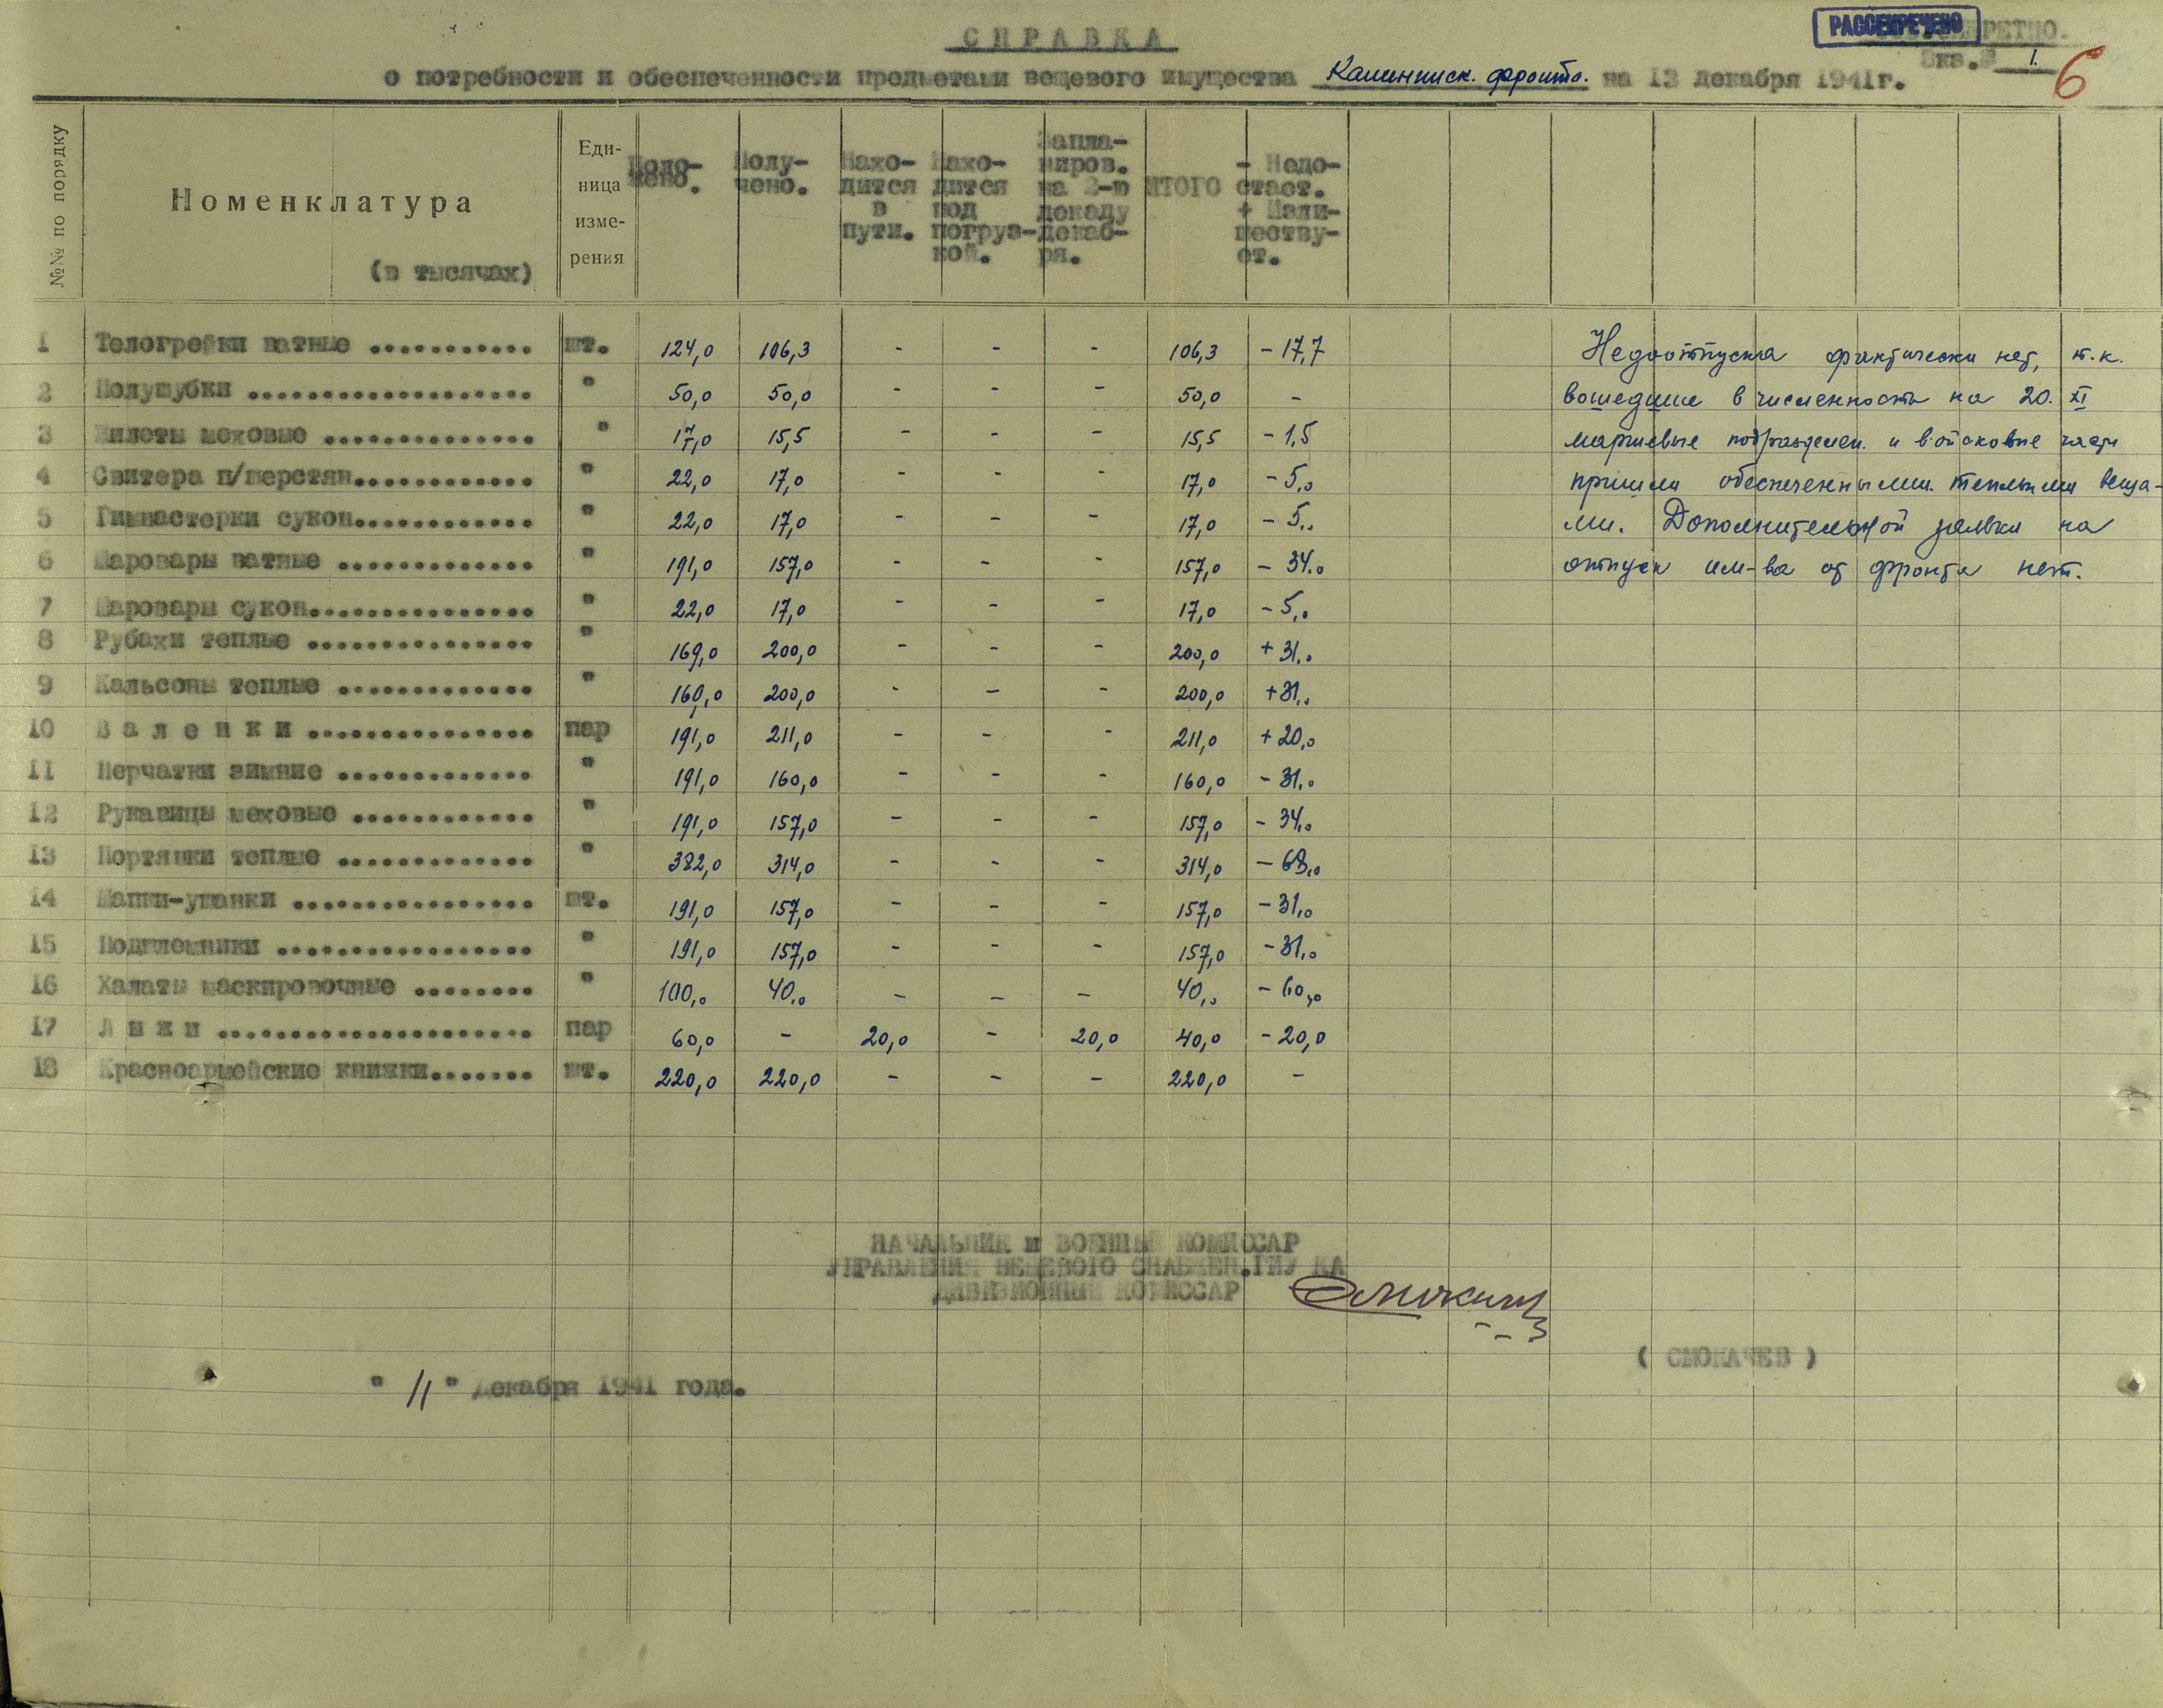 СПРАВКА
РАССЕКРЕЧЕНО
Экз.№ 1.
6
о потребности и обеспеченности предметами вещевого имущества Калининск. фронта. на 13 декабря 1941г.
№№ по порядку
Номенклатура
(в тысячах)
Еди-
ница
изме-
рения
Поло-
жено.
Полу-
чено.
Нахо-
дится
в
пути.
Нахо-
дится
под
погруз-
кой.
Запла-
ниров.
на 2-ю
декаду
декаб-
ря.
ИТОГО
- Недо-
стает.
+ Изли-
шеству-
ет.
1 Телогрейки ватные ........... шт. 124,0 106,3 - - - 106,3 - 17,7
2 Полушубки ................... " 50,0 50,0 - - - 50,0 -
3 Жилеты меховые .............. " 17,0 15,5 - - - 15,5 - 1,5
4 Свитера п/шерстян............ " 22,0 17,0 - - - 17,0 - 5,0
5 Гимнастерки сукон............ " 22,0 17,0 - - - 17,0 - 5,0
6 Шаровары ватные ............. " 191,0 157,0 - - - 157,0 - 34,0
7 Шаровары сукон............... " 22,0 17,0 - - - 17,0 - 5,0
8 Рубахи теплые ............... " 169,0 200,0 - - - 200,0 + 31,0
9 Кальсоны теплые ............. " 169,0 200,0 - - - 200,0 + 31,0
10 Валенки ............... пар 191,0 211,0 - - - 211,0 + 20,0
11 Перчатки зимние ............. " 191,0 160,0 - - - 160,0 - 31,0
12 Рукавицы меховые ............ " 191,0 157,0 - - - 157,0 - 34,0
13 Портянки теплые ............. " 382,0 314,0 - - - 314,0 - 68,0
14 Шапки-ушанки ................ шт. 191,0 157,0 - - - 157,0 - 31,0
15 Подшлемники ................. " 191,0 157,0 - - - 157,0 - 31,0
16 Халаты маскировочные ........ " 100,0 40,0 - - - 40,0 - 60,0
17 Лыжи ..................... пар 60,0 - 20,0 - 20,0 40,0 - 20,0
18 Красноармейские книжки....... шт. 220,0 220,0 - - - 220,0 -
Недоотпуска фактически нет, т.к.
вошедшие в численность на 20. XI
маршевые подразделен. и войсковые части
пришли обеспеченными теплыми веща-
ми. Дополнительной заявки на
отпуск им-ва от фронта нет.
НАЧАЛЬНИК и ВОЕННЫЙ КОМИССАР
УПРАВЛЕНИЯ ВЕЩЕВОГО СНАБЖЕН.ГИУ КА
ДИВИЗИОННЫЙ КОМИССАР
( СМОКАЧЕВ )
" 11 " декабря 1941 года.